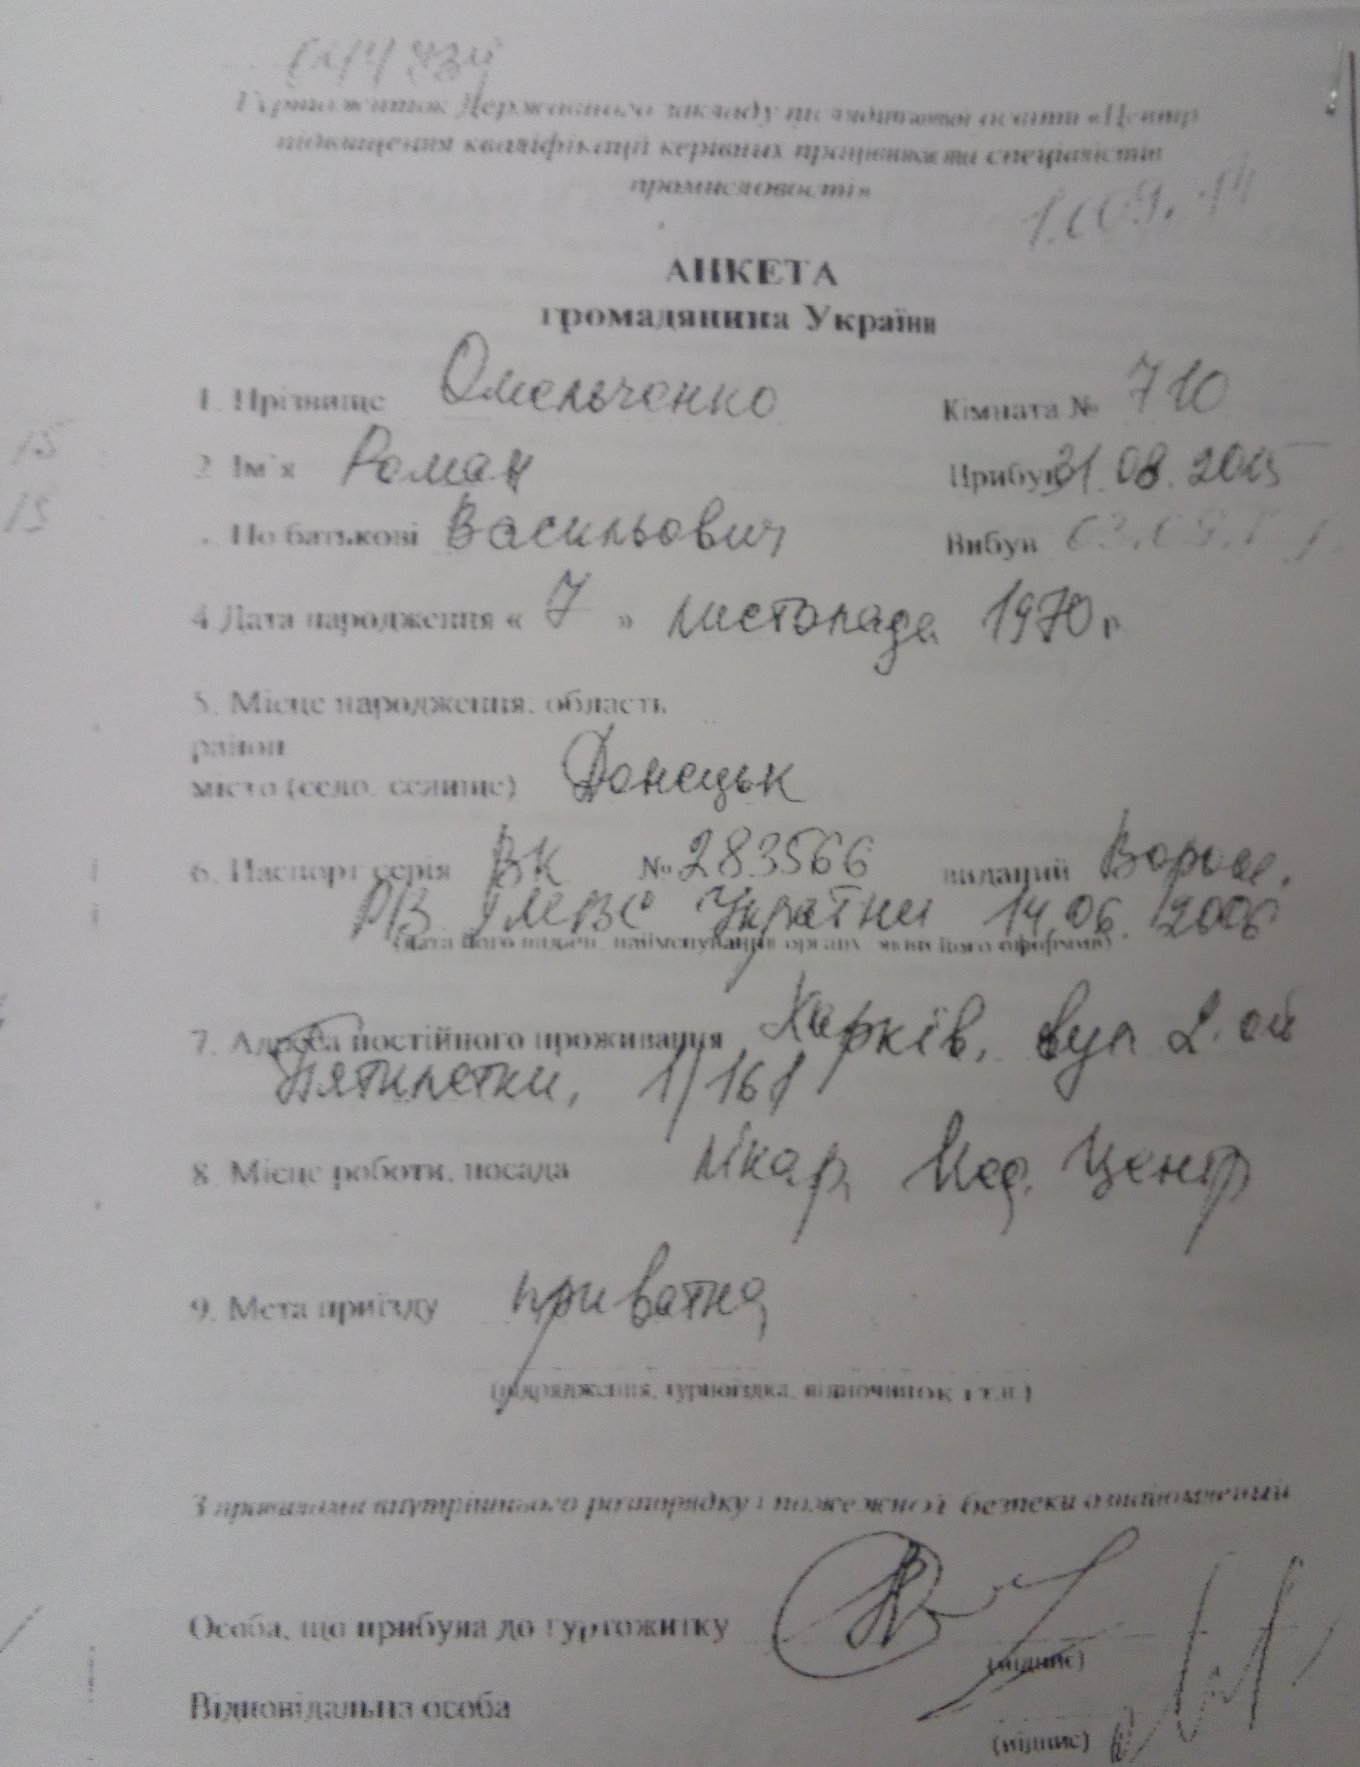 Гуртожиток Державного закладу післядипломної освіти «Центр
підвищення кваліфікації керівних працівників та спеціалістів
промисловості»
АНКЕТА
громадянина України
1. Прізвище Омельченко Кімната № 710
2. Ім`я Роман Прибув 31.08.2015
По батькові Васильович Вибув 03.09.
15
15
4 Дата народження « 7 » листопада 1970 г
5. Місце народження: область
район
місто (село, селище) Донецьк
6. Паспорт серія ВК № 283566 виданий Ворош.
РВ УМВС України 14.06.2006
(дата його видачі, найменування органу, який його оформив)
7. Адреса постійного проживання Харків, вул 2-ой
Пятилетки, 1/161
8. Місце роботи, посада лікар, Мед. Центр
9. Мета приїзду приватна
(відрядження, турпоїздка, відпочинок і т.п.)
З правилами внутрішнього розпорядку і пожежної безпеки ознайомлений
Особа, що прибула до гуртожитку
(підпис)
Відповідальна особа
(підпис)